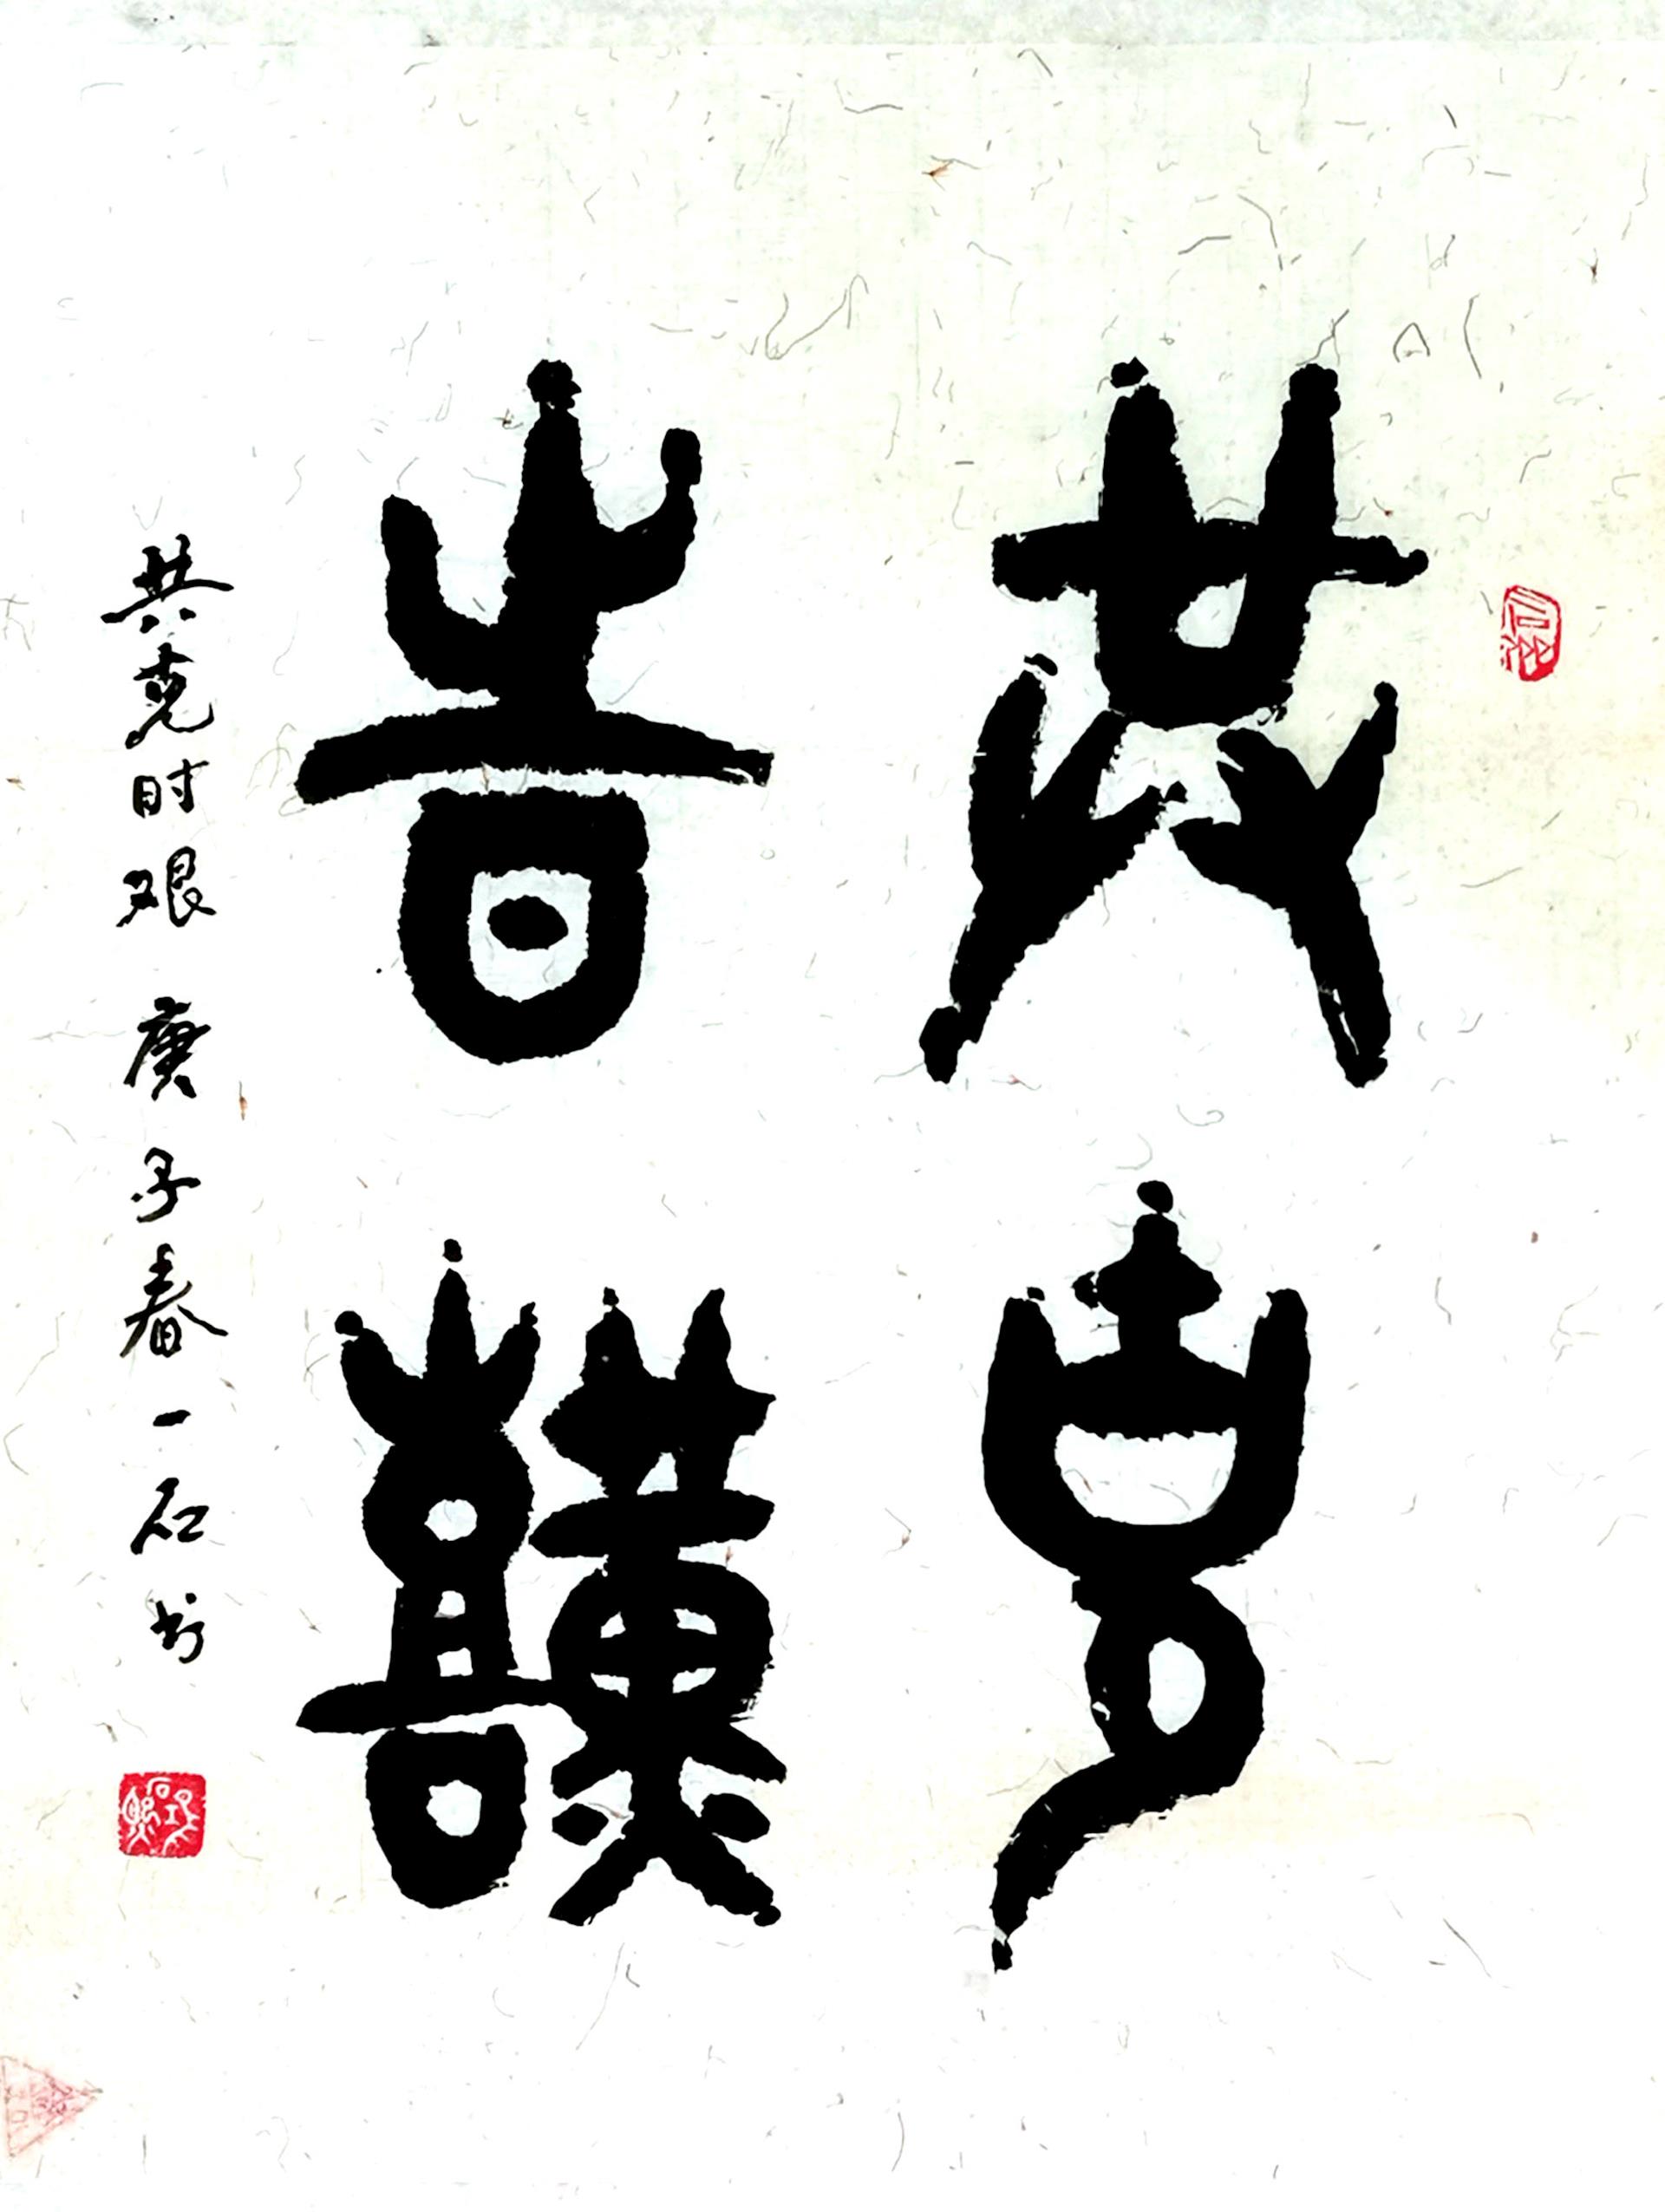 共克
时艰
共克时艰 庚子春一石书